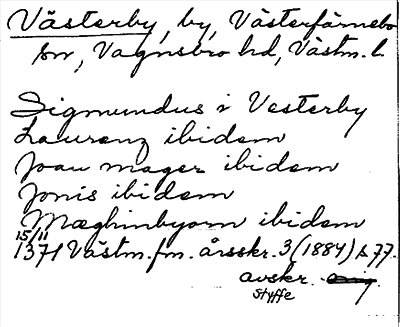 Västerby, by, Västerfärnebo
sn, Vagnsbro hd, Västm. l.
Sigmundus i Vesterby
Laurenz ibidem
Joan mager ibidem
Jonis ibidem
Mæghinbyorn ibidem
15/11
1371 Västm. fm. årsskr. 3 (1884) s. 77.
avskr.
Styffe